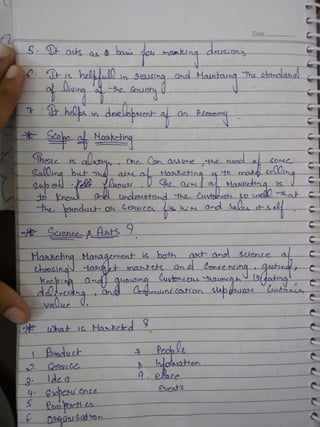 Date
5. It acts as a basis for making decisions
6. It is helpfull in raising and Maintaing the standard
of living of the Society
7. It helps in development of an Economy.
* Scope of Marketing
There is always, One Can assume the need of some
Selling but the aim of Marketing is to make selling
. The aim of Marketing is
to Know and understand the Customer so well that
the product or Services fits him and Sells itself.
* Science & Arts ?
Marketing Management is both art and science of
choosing target markets and getting,
Keeping and growing Customers through
delivering, and Communication Customer
value.
* What is Marketed ?
1 Product
2. Service
3. Idea
4. experience
5 Properties
6 organisation
7 People
8 Information
9. place
Events